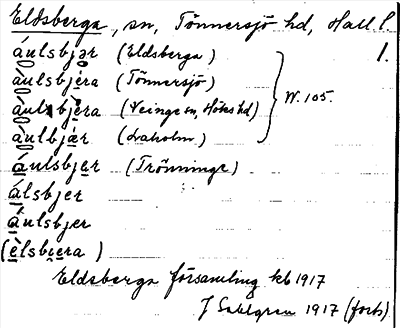 Eldsberga, sn, Tönnersjö hd, Hall. l.
áulsbjạr (Eldsberga) 1.
àulsbjéra (Tönnersjö)
àulsbjèra (Veinge sn, Höks hd) W. 105.
áulbjár (Laholm)
áulsbjer (Trönninge)
álsbjer
áulsbjer
(èlsbiera)
Eldsberga församling kb 1917
J Sahlgren 1917 (forts)